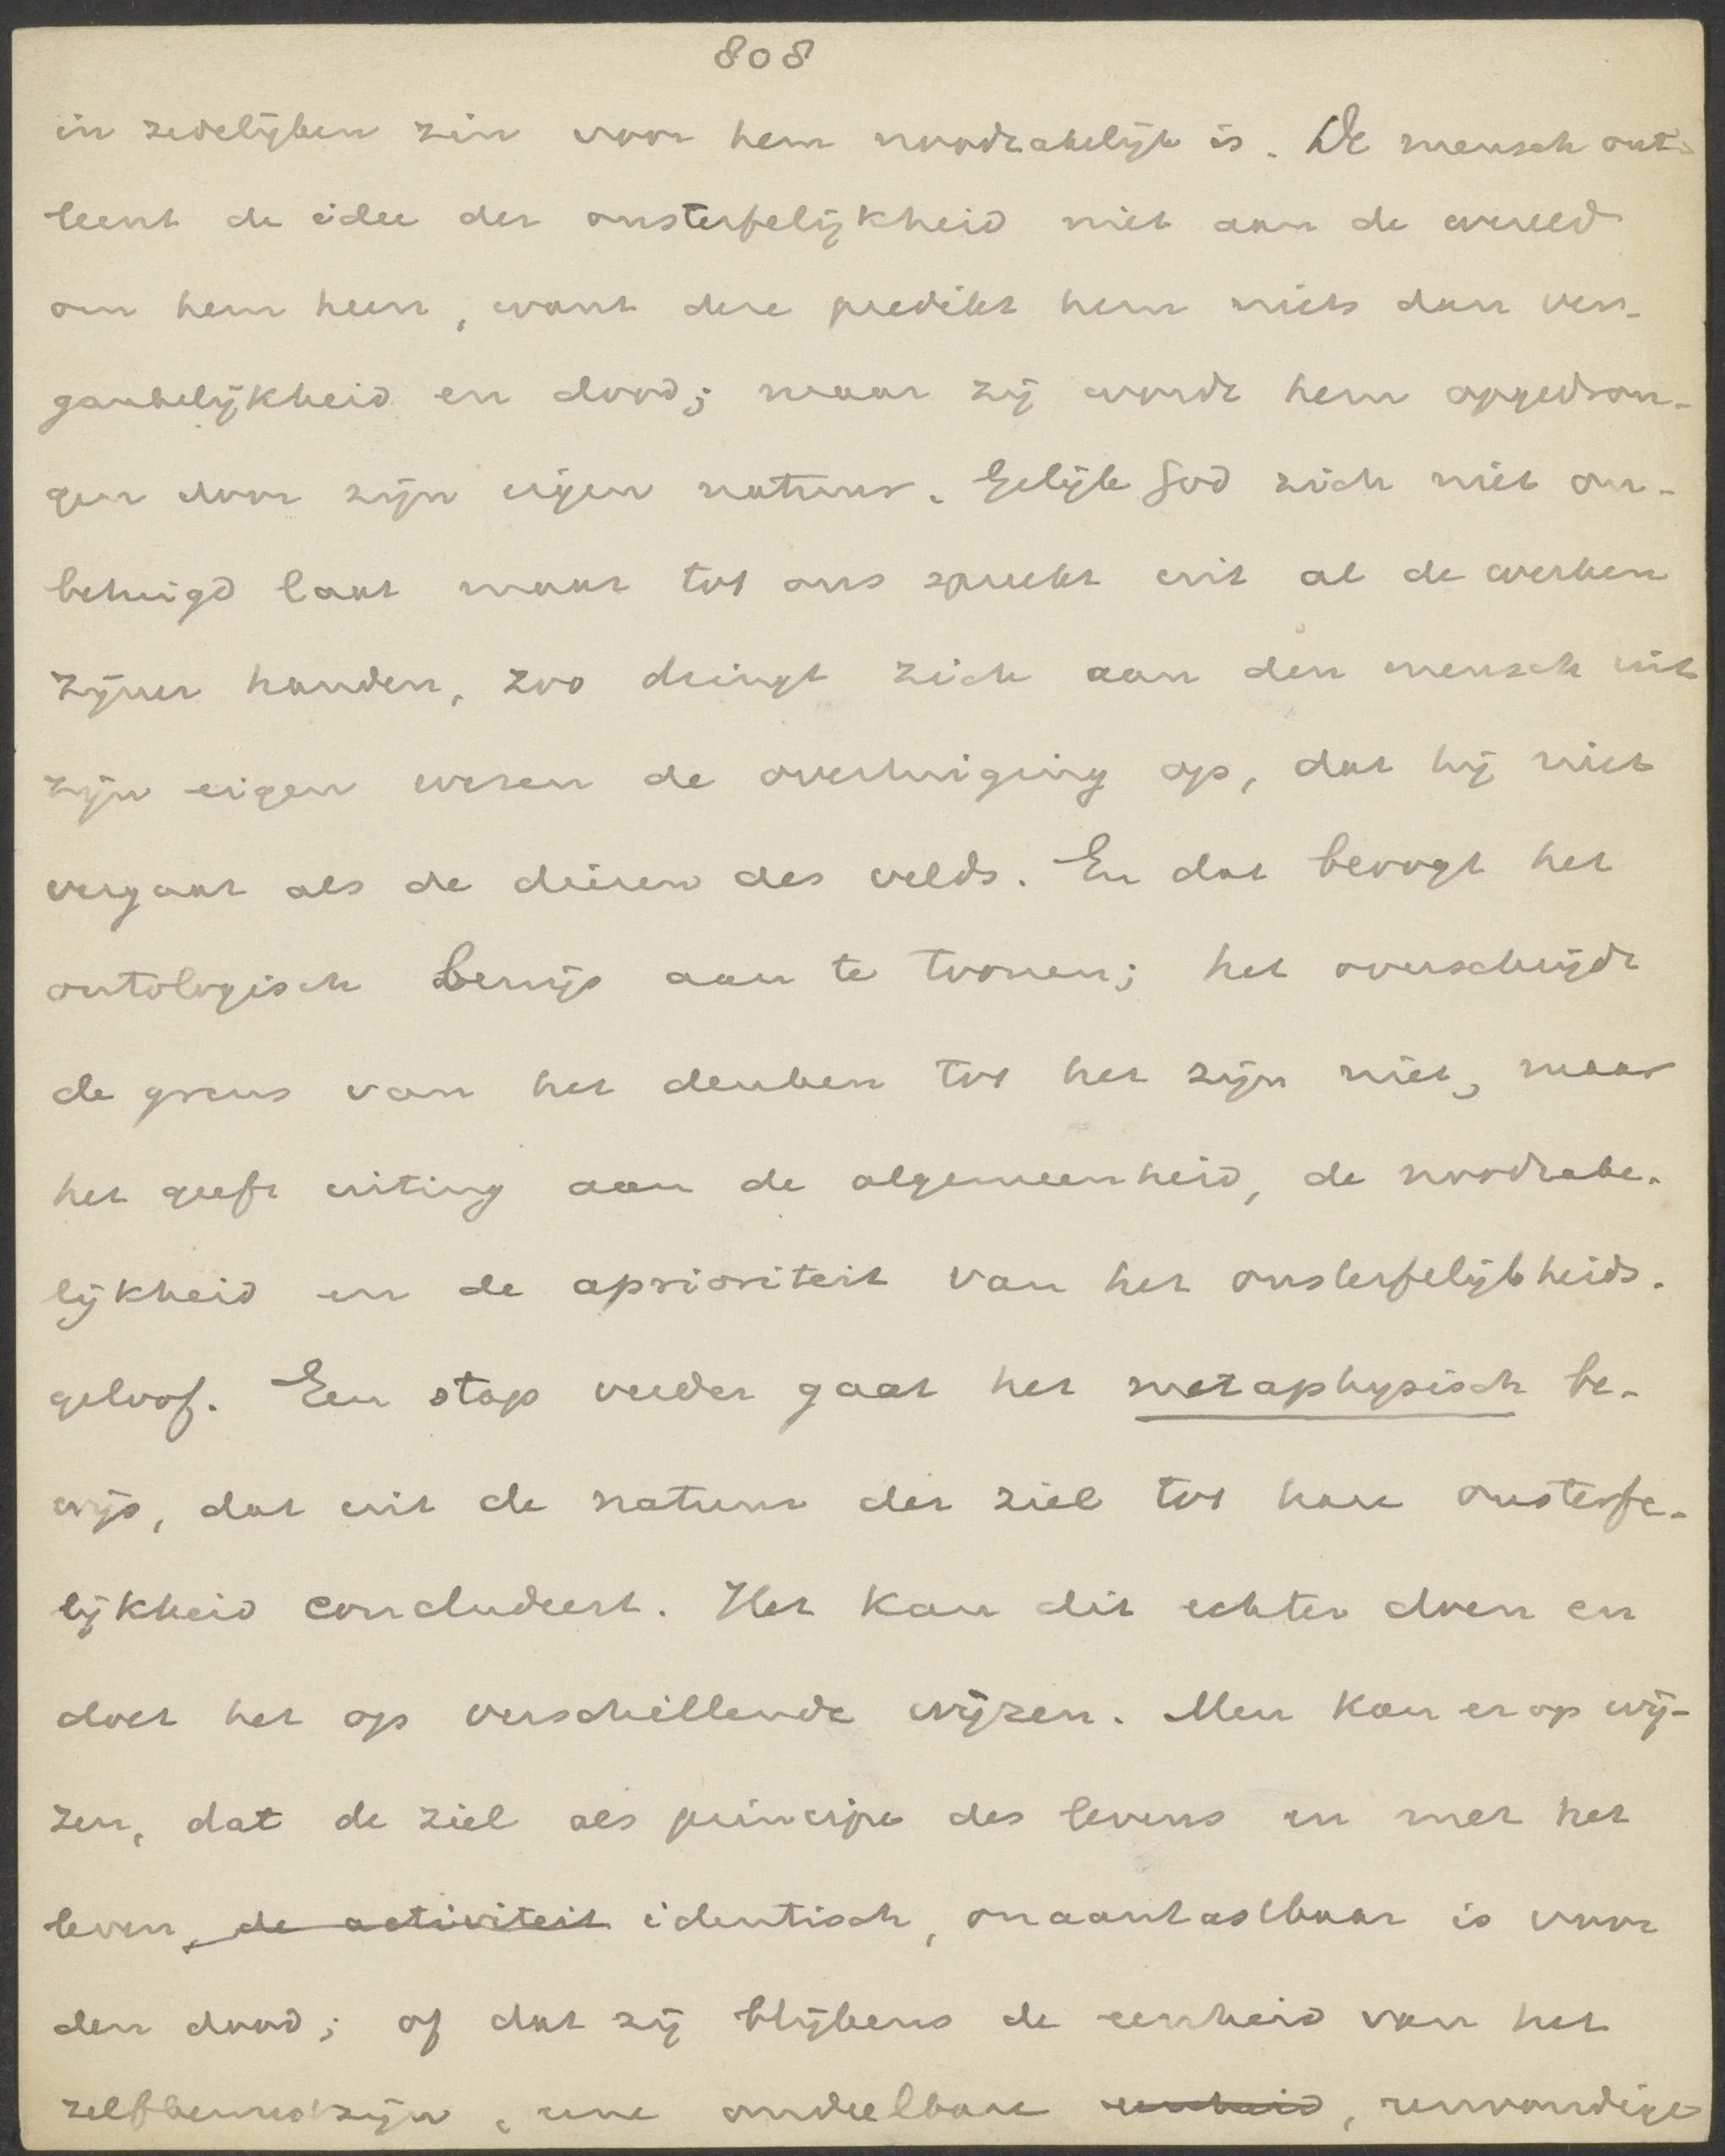 808
in zedelijken zin voor hem noodzakelijk is. De mensch ont-
leent de idee der onsterfelijkheid niet aan de wereld
om hem heen, want deze predikt hem niets dan ver-
gankelijkheid en dood; maar zij wordt hem opgedron-
gen door zijn eigen natuur. Gelijk God zich niet on-
betuigd laat maar tot ons spreekt uit al de werken
zijner handen, zoo dringt zich aan den mensch uit
zijn eigen wezen de overtuiging op, dat hij niet
vergaat als de dieren des velds. En dat beoogt het
ontologisch bewijs aan te toonen; het overschrijdt
de grens van het denken tot het zijn niet, maar
het geeft uiting aan de algemeenheid, de noodzake-
lijkheid en de aprioriteit van het onsterfelijkheids-
geloof. Een stap verder gaat het metaphysisch be-
wijs, dat uit de natuur der ziel tot hare onsterfe-
lijkheid concludeert. Het kan dit echter doen en
doet het op verschillende wijzen. Men kan er op wij-
zen, dat de ziel als principe des levens en met het
leven, de activiteit identisch, onaantastbaar is voor
den dood; of dat zij blijkens de eenheid van het
zelfbewustzijn, eene ondeelbare eenheid, eenvoudige